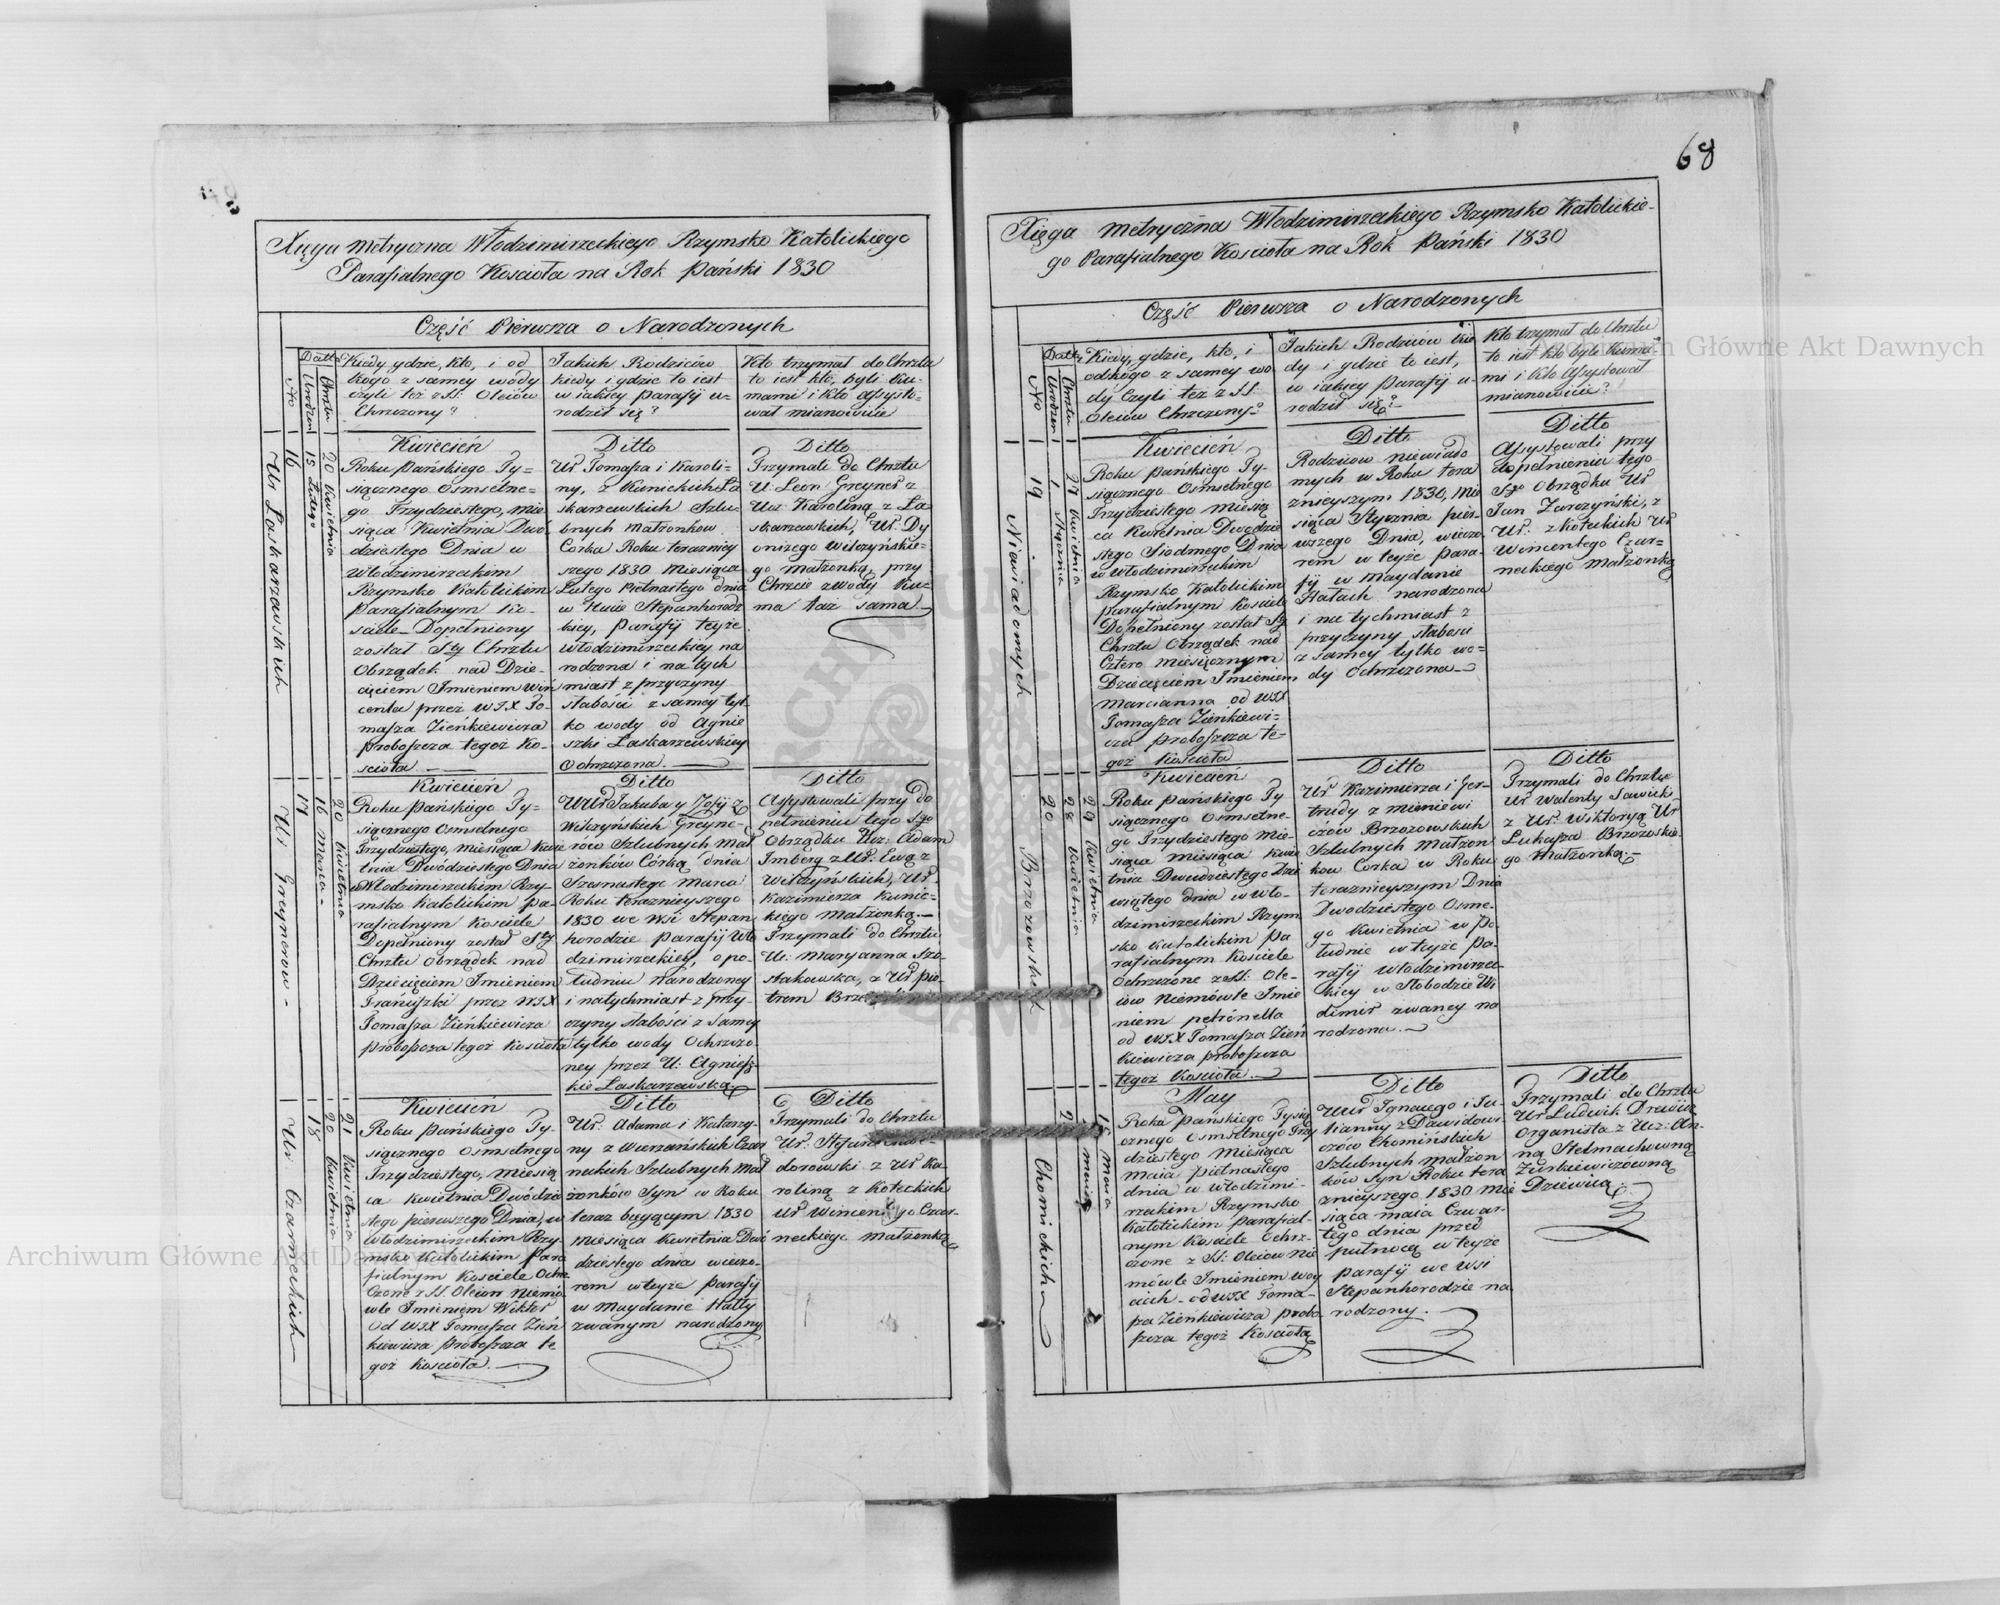 68
Xięga Metryczna Włodzimirzeckiego Rzymsko Katolickiego
Parafialnego Koscioła na Rok Pański 1830
Część Pierwsza o Narodzonych
No
Datta
Urodzeni
Chrztu
Kiedy gdzie, kto, i od
kogo z samey wody
czyli też z SS: Oleiów
Chrzczony?
Jakich Rodziców
kiedy i gdzie to iest
w iakiey parafij u=
rodził się?
Kto trzymał do Chrztu
to iest kto, byli Ku-
mami i kto assysto=
wał mianowicie
Ur Laskarzewskich
16
15 Lutego
20 Kwietnia
Kwiecień
Roku Pańskiego Ty=
siącznego Osmsetne=
go Trzydziestego, mie
siąca Kwietnia Dwó
dziestego Dnia w
Włodzimirzeckim
Rzymsko Katolickim
parafialnym Ko-
sciele Dopełniony
został Sty Chrztu
Obrządek nad Dzie-
cięciem Imieniem Win
centa przez WJX To-
masza Zieńkiewicza
proboszcza tegoż Ko-
scioła.
Ditto
Ur Tomasza i Karoli=
ny, z Kunickich La
skarzewskich Szlu-
bnych małzonkow
Corka Roku terazniey
szego 1830 Miesiąca
Lutego Pietnastego dnia
w Hucie Stepanhorodz
kiey, parafij teyże
Włodzimirzeckiey na
rodzona i natych
miast z przyczyny
słabości z samey tyl-
ko wody od Agnie
szki Laskarzewskiey
Ochrzczona.
Ditto
Trzymali do Chrztu
U: Leon Greyner z
Ucz: Karoliną z La-
skarzewskich, Ur: Dy
onizego Wilczyńskie-
go małzonką, przy
Chrzcie z wody Ku-
ma taż sama
Ur Greynerow
17
16 Marca
20 Kwietnia
Kwiecień
Roku Pańskiego Ty=
siącznego Osmsetnego
Trzydziestego, miesiąca Kwie
tnia Dwódziestego Dnia
w Włodzimirzeckim Rzy-
msko Katolickim pa-
rafialnym Kosciele
Dopełniony został Sty
Chrztu Obrządek nad
Dziecięciem Imieniem
Franciszki przez WJX
Tomasza Zieńkiewicza
proboszcza tegoż Kościoła
Ditto
WUr Jakuba y Zofij z
Wilczyńskich Greyne-
rów Szlubnych Mał
żonków Córką dnia
Szesnastego Marca
Roku teraznieyszego
1830 we Wsi Stepan
horodzie parafij Wło
dzimirzeckiey, o po-
łudniu narodzoney
i natychmiast z przy-
czyny słabości z samey
tylko wody Ochrzczo-
ney przez U: Agniesz-
kie Laskarzewską
Ditto
Assystowali przy do
pełnieniu tego Sgo
Obrządku Ucz: Adam
Imberg z Ur: Ewą z
Wilczyńskich, Ur
Kazimierza Kunic-
kiego Małżonką.
Trzymali do Chrztu
U: Maryanna Szo-
stakowska, z Ur pio-
trem
Ur Czarneckich
18
20 Kwietnia
21 Kwietnia
Kwiecień
Roku Pańskiego Ty-
siącznego Osmsetnego
Trzydziestego, miesią
ca Kwietnia Dwódzie
stego pierwszego Dnia, w
Włodzimirzeckim Rzy-
msko Katolickim Para
fialnym Kosciele Ochrz
czone z SS. Oleiow niemó
wle Imieniem Wiktor
Od WJX Tomasza Zień
kiewicza Proboszcza te
goż Koscioła.
Ditto
Ur. Adama i Katarzy-
ny z Wierzańskich Czar
neckich Szlubnych Mał
żonków Syn w Roku
teraz bęgącym 1830
Miesiąca Kwietnia Dwó
dziestego dnia wieczo-
rem w teyże parafij
w Maydanie Hatty
zwanym narodzony
Ditto
Trzymali do Chrztu
Ur:
dorowski z Ur Ka
roliną z Koteckich
Ur Wincentego Czar-
neckiego małżonką
Xięga metryczna Włodzimirzeckiego Rzymsko Katolickie-
go Parafialnego Kościoła na Rok Pański 1830
Część Pierwsza o Narodzonych
No
Datta
Urodzeni
Chrztu
Kiedy, gdzie, kto, i
od kogo z samey wo
dy Czyli też z SS
Oleiów Chrzczony?
Jakich Rodziców kie
dy i gdzie to iest,
w iakiey parafij u-
rodził się?
Kto trzymał do Chrztu
to iest kto byli Kuma-
mi i kto Assystował
mianowicie?
Niewiadomych
19
1 Stycznia
27 Kwietnia
Kwiecień
Roku Pańskiego Ty-
siącznego Osmsetnego
Trzydziestego miesią
ca Kwietnia Dwodzie
stego Siodmego Dnia
w Włodzimirzeckim
Rzymsko Katolickim
parafialnym Kosciele
Dopełniony został Sty
Chrztu Obrządek nad
Cztero miesięcznym
Dziecięciem Imieniem
Marcianna od WJX
Tomasza Zieńkiewi=
cza proboszcza te-
goż Koscioła
Ditto
Rodziców niewiado
mych w Roku tera
znieyszym 1830, Mie
siąca Stycznia pier-
wszego Dnia, wieczo
rem w teyże Para-
fij w Maydanie
Hatach narodzona
i natychmiast z
przyczyny słabosci
z samey tylko wo=
dy Ochrzczona
Ditto
Assystowali przy
dopełnieniu tego
Sgo Obrządku Ur
Jan Zaroczyński, z
Ur: z Koteckich Ur
Wincentego Czar=
neckiego małżonką
Brzozowskich
20
28 Kwietnia
29 Kwietnia
Kwiecień
Roku Pańskiego Ty
siącznego Osmsetne-
go Trzydziestego Mie-
siąca miesiąca Kwie
tnia Dwudziestego Dzie
wiątego dnia w Wło-
dzimirzeckim Rzym
sko Katolickim Pa
rafialnym Kościele
Ochrzczone z SS. Ole-
iów Niemówle Imie
niem petronella
od WJX Tomasza Zień
Kiewicza proboszcza
tegoż Koscioła.
Ditto
Ur Kazimierza i Ger-
trudy z Mieniewi
czów Brzozowskich
Szlubnych małżon
kow Corka w Roku
teraznieyszym Dnia
Dwodziestego Osme-
go Kwietnia w po-
łudnie w teyże Pa-
rafij Włodzimirzec-
kiey w Słobodzie Wł
dimir zwaney na
rodzona.
Ditto
Trzymali do Chrztu
Ur Walenty Sawicki
z Ur. Wiktoryą Ur
Łukasza Brzozoskie-
go Małżonką.
Chomickich
21
15 Maia
May
Roku Pańskiego Tysią
cznego Osmsetnego Trzy
dziestego Miesiąca
maia pietnastego
dnia w Włodzimi-
rzeckim Rzymsko
Katolickim parafial-
nym Kosciele Ochrz-
czone z SS. Oleiow nie
mówle Imieniem Woy
ciech od WJX Toma-
sza Zieńkiewicza probo-
szcza tegoż Kościoła
Ditto
WUr Ignacego i Ju-
lianny z Dawidowi
czów Chomińskich
Szlubnych małżon
ków Syn Roku tera
znieyszego 1830 Mie
siąca maia Czwar-
tego dnia przed
pułnocą w teyże
parafij we wsi
Stepanhorodzie na
rodzony.
Ditto
Trzymali do Chrztu
Ur Ludwik Drewicz
Organista z Ucz: An-
ną Stelmachowną
Zurkiewiczówną
Dziewicą.
Archiwum Główne Akt Dawnych
Archiwum Główne Akt Dawnych